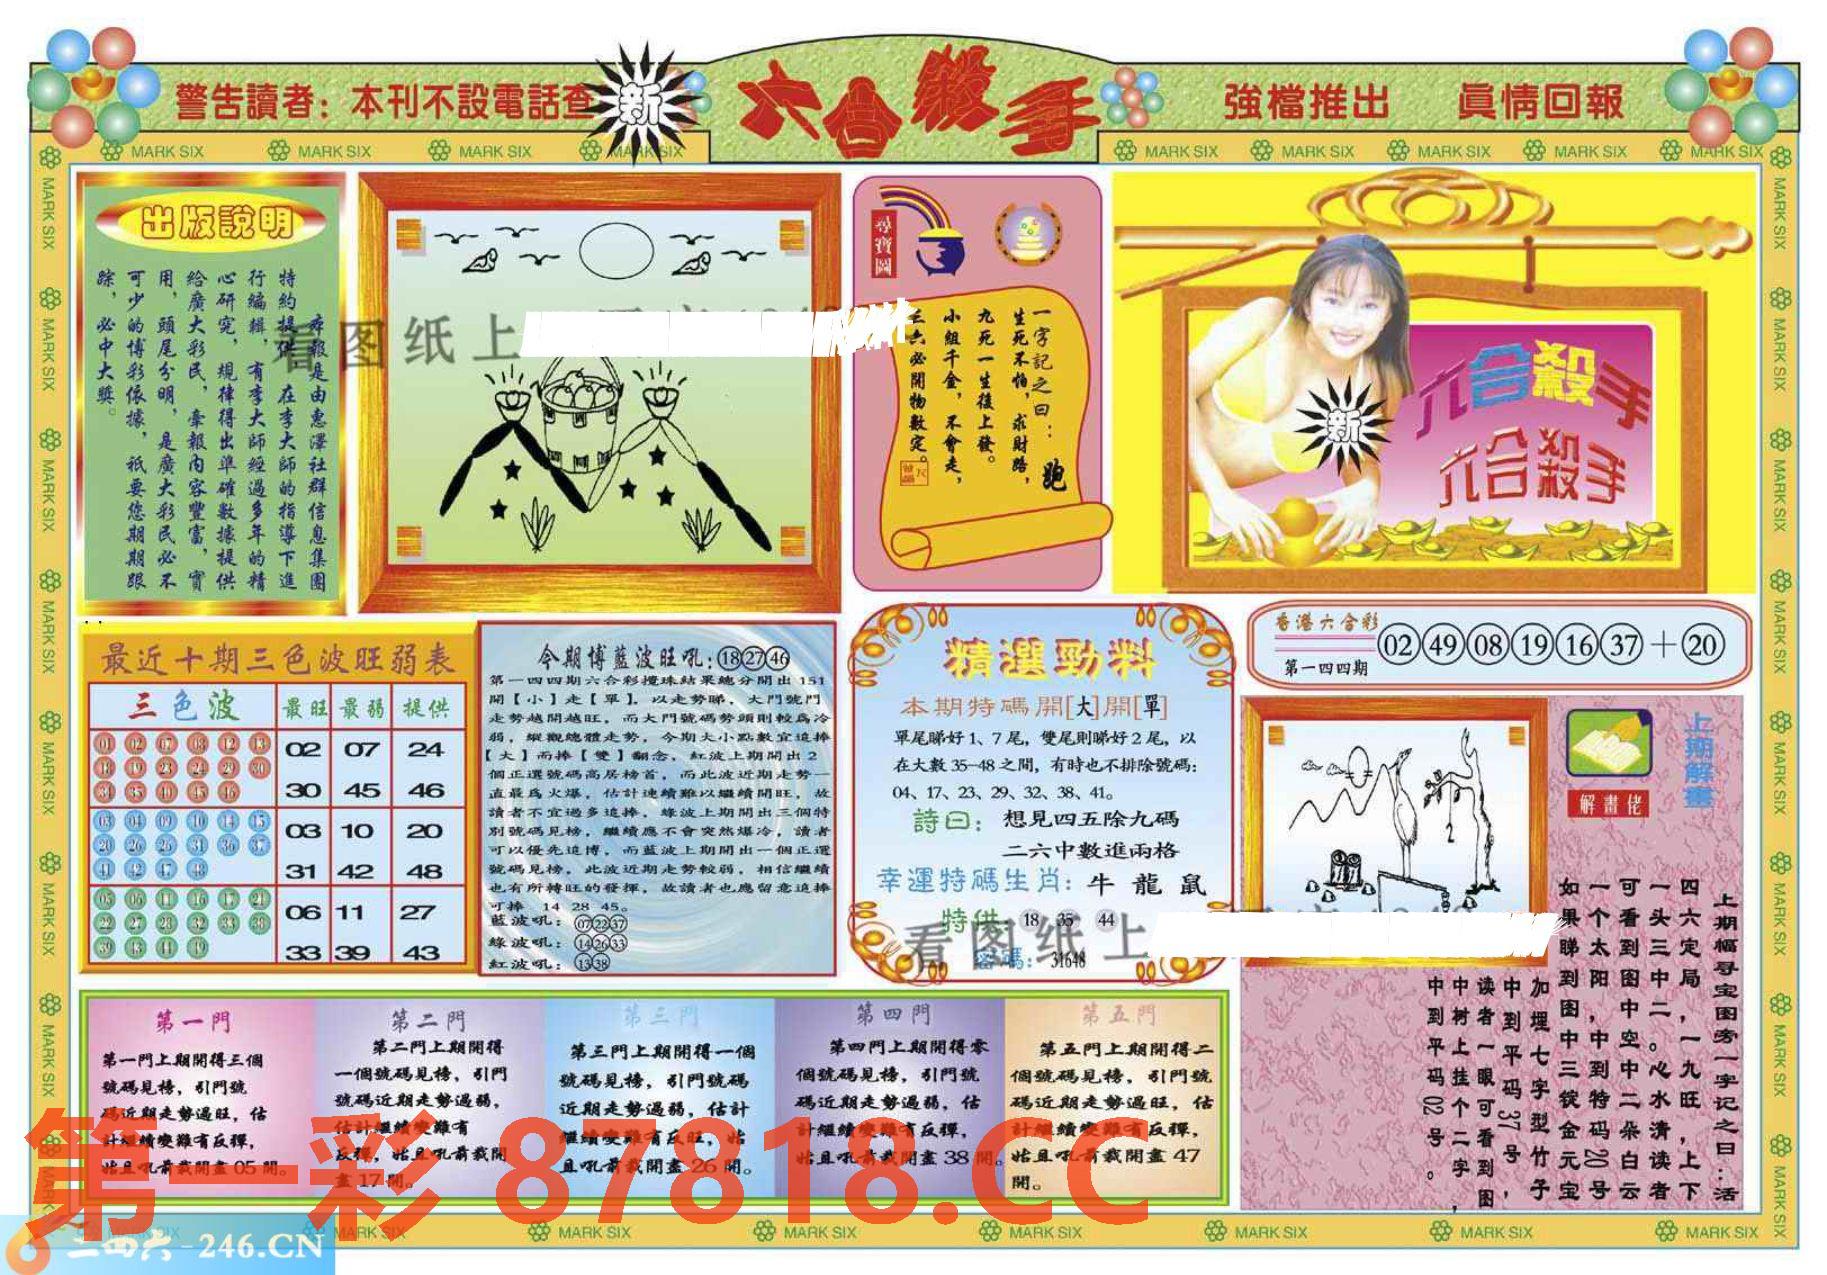 警告讀者：本刊不設電話查
新
六合殺手
強檔推出 眞情回報
MARK SIX
出版說明
本報是由惠澤社群信息集團
特約提供，在李大師的指導下進
行編輯，有李大師經過多年的精
心研究，規律得出準確數據提供
給廣大彩民，本報內容豐富，實
用，頭尾分明，是廣大彩民必不
可少的博彩依據，祇要您期期跟
踪，必中大獎。
看图纸上
尋寶圖
一字記之曰：跑
生死不怕，求財路，
九死一生後上發。
小組千金，不會走，
三六必開物數定。
新
六合殺手
六合殺手
香港六合彩
第一四四期
02 49 08 19 16 37 + 20
最近十期三色波旺弱表
三色波 最旺 最弱 提供
01 02 07 08 12 13
18 19 23 24 29 30
34 35 40 45 46
02 07 24
30 45 46
03 04 09 10 14 15
20 25 26 31 36 37
41 42 47 48
03 10 20
31 42 48
05 06 11 16 17 21
22 27 28 32 33 38
39 43 44 49
06 11 27
33 39 43
今期博藍波旺吼：18 27 46
第一四四期六合彩攪珠結果總分開出 151
開【小】走【單】，以走勢睇，大門號門
走勢越開越旺，而大門號碼勢頭則較爲冷
弱，縱觀總體走勢，今期大小點數宜追捧
【大】而捧【雙】翻念，紅波上期開出 2
個正選號碼高居榜首，而此波近期走勢一
直最爲火爆，估計連續難以繼續開旺，故
讀者不宜過多追捧，綠波上期開出三個特
別號碼見榜，繼續應不會突然爆冷，讀者
可以優先追博，而藍波上期開出一個正選
號碼見榜，此波近期走勢較弱，相信繼續
也有所轉旺的發揮，故讀者也應留意追捧
可捧 14 28 45。
藍波吼：07 22 37
綠波吼：14 26 33
紅波吼：13 38
精選勁料
本期特碼開[大]開[單]
單尾睇好1、7尾，雙尾則睇好2尾，以
在大數35-48之間，有時也不排除號碼：
04、17、23、29、32、38、41。
詩曰：想見四五除九碼
二六中數進兩格
幸運特碼生肖：牛 龍 鼠
特供：18 35 44
密碼：31648
看图纸上
上期解畫
解畫佬
上期幅寻宝图旁一字记之曰：活
四六定局，一九旺，上下
一头三中二。心水清读者
可看到图中空中二朵白云
一个太阳，中到特码20号
如果睇到图中三锭金元宝
加埋七字型竹子
中到平码37号，
读者一眼可看到图
中树上挂个二字，
中到平码02号。
第一門
第一門上期開得三個
號碼見榜，引門號
碼近期走勢過旺，估
計繼續變難有反彈，
姑且吼前裁開盡 05 開。
第二門
第二門上期開得
一個號碼見榜，引門
號碼近期走勢過弱，
估計繼續變難有
反彈，姑且吼前裁開
盡 17 開。
第三門
第三門上期開得一個
號碼見榜，引門號碼
近期走勢過弱，估計
繼續變難有反旺，姑
且吼前裁開盡 26 開。
第四門
第四門上期開得零
個號碼見榜，引門號
碼近期走勢過弱，估
計繼續變難有反彈，
姑且吼前裁開盡 38 開。
第五門
第五門上期開得二
個號碼見榜，引門號
碼近期走勢過旺，估
計繼續變難有反彈，
姑且吼前裁開盡 47
開。
第一彩 87818.CC
二四六-246.CN